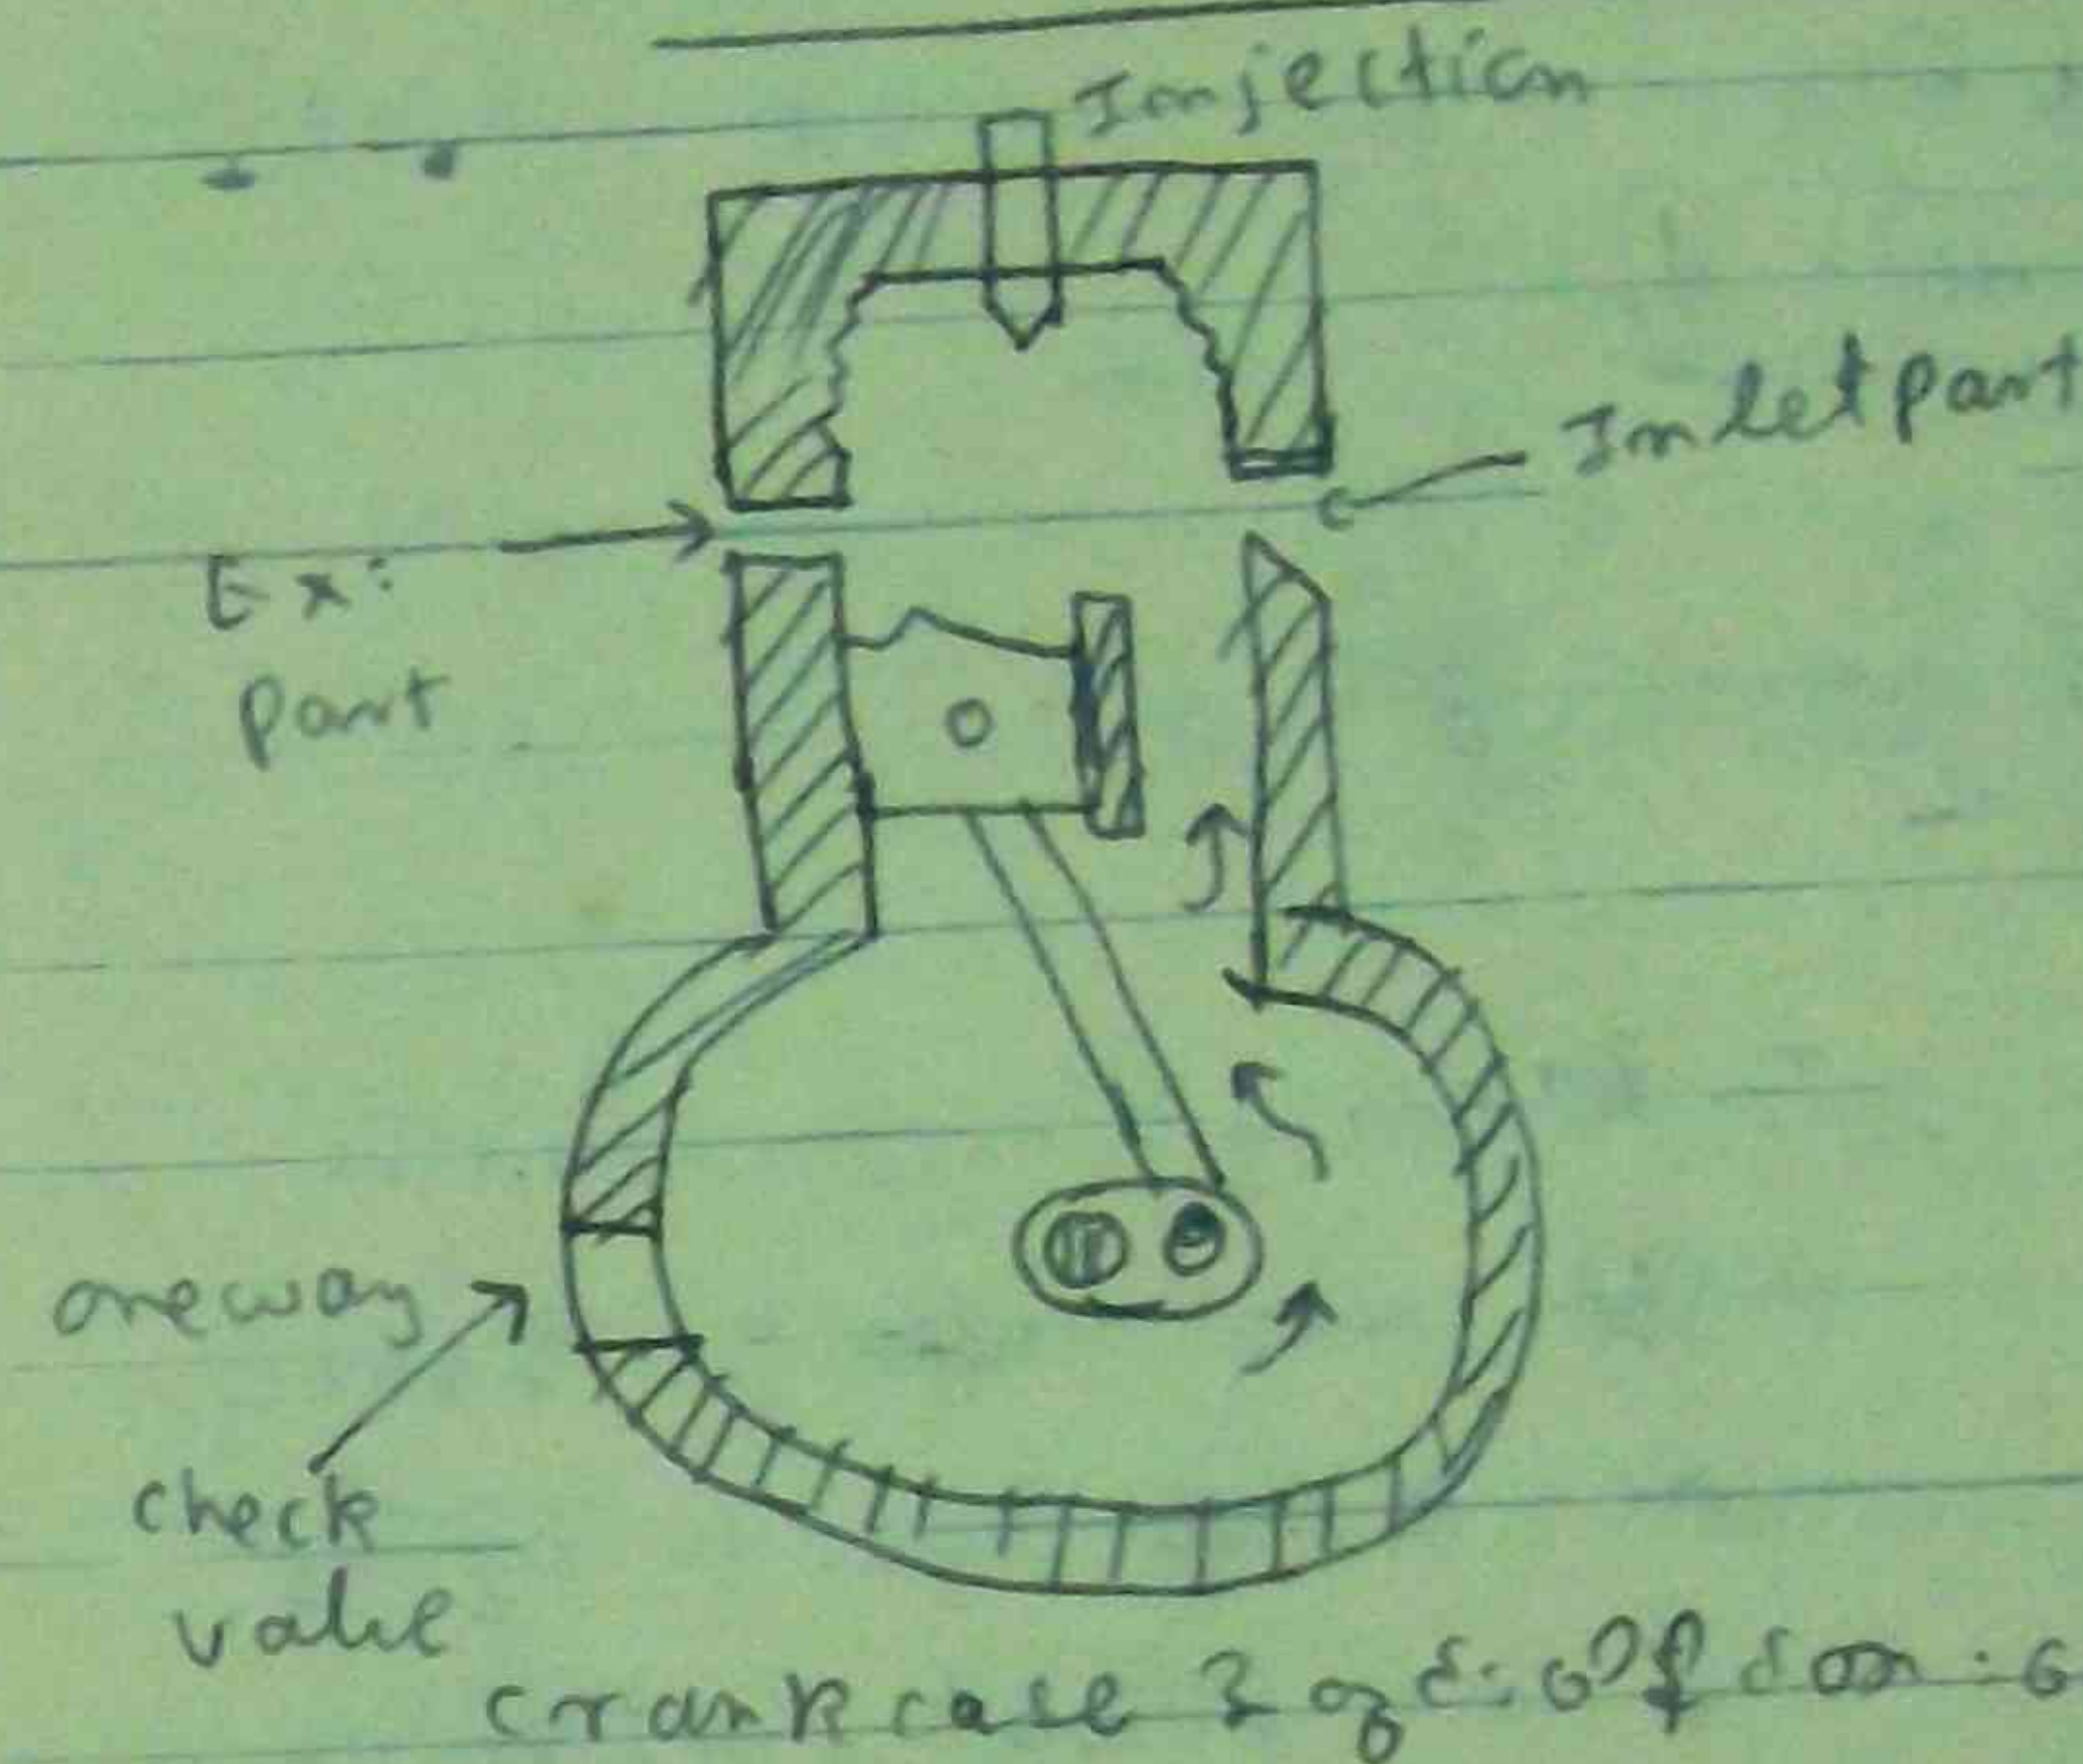 Injection
Inlet part
Ex:
part
oneway
check
valve
crank case